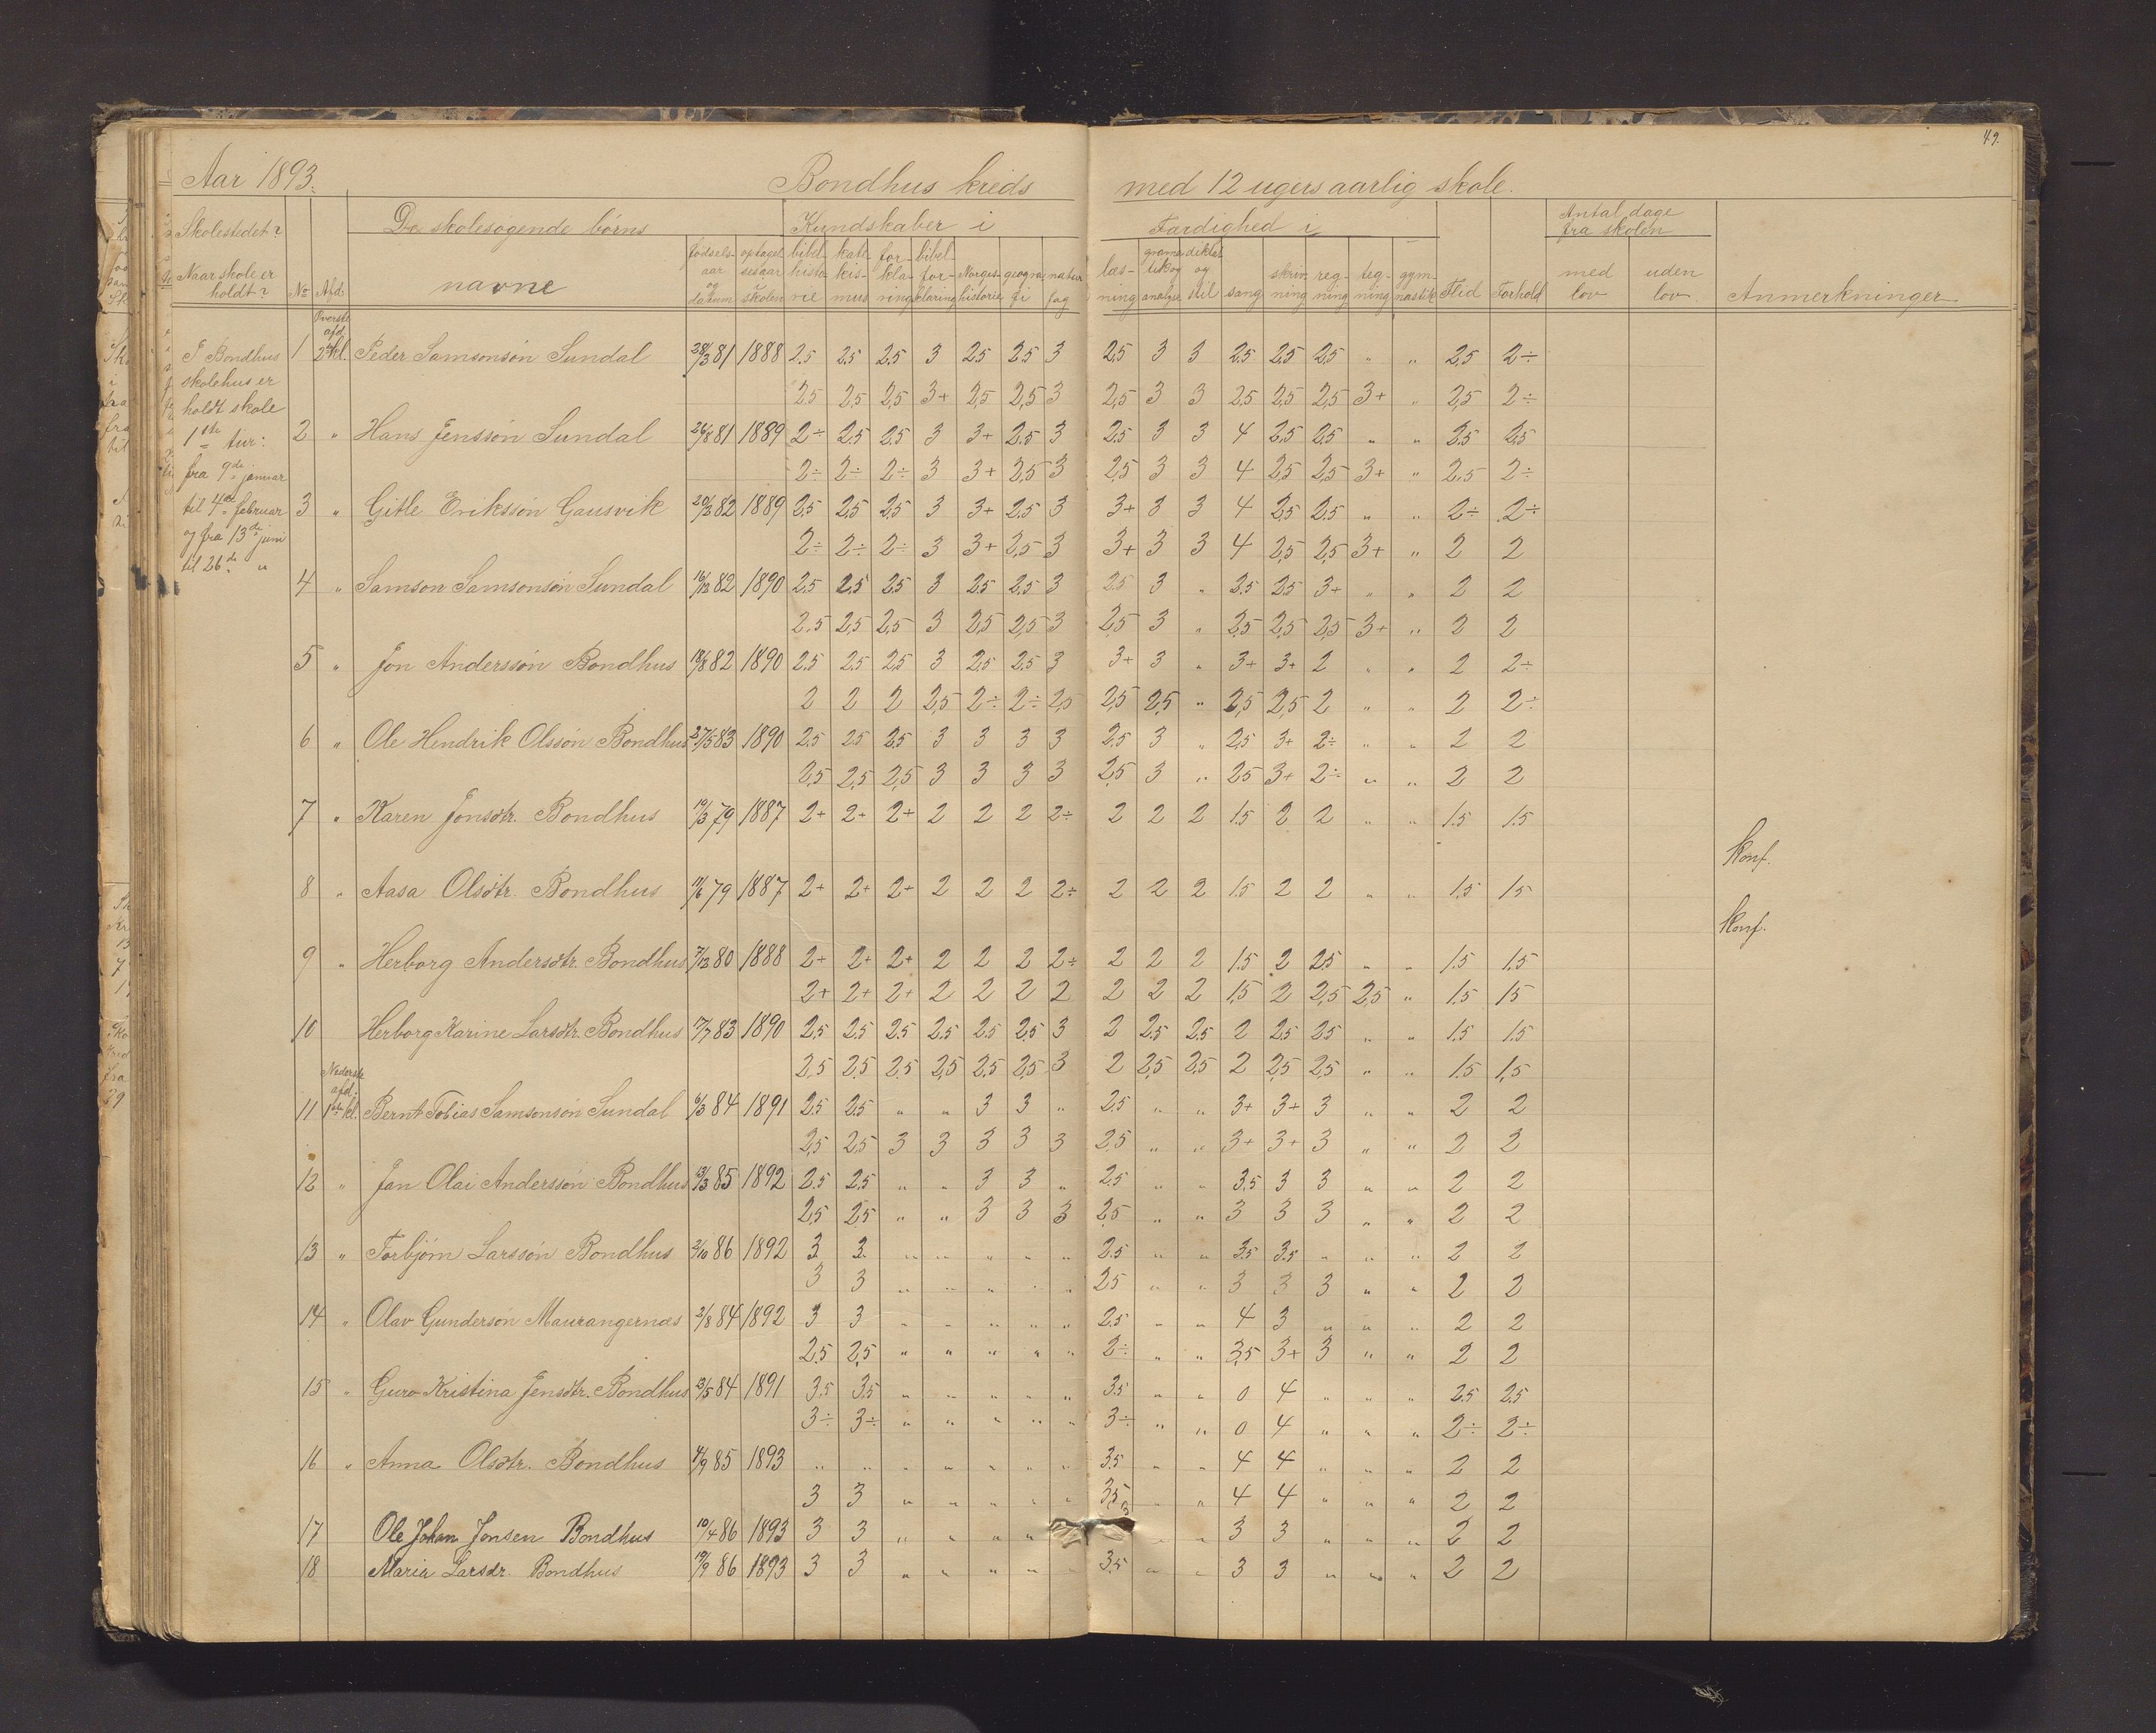 49.
Aar 1893. Bondhus kreds med 12 ugers aarlig skole.
Skolestedet? De skolesøgende børns Kundskaber i Færdighed i Antal dage fra skolen
Naar skole er holdt? No Afd. navne fødsels-aar og datum optagelsesaar skolen bibelhistorie katekismus forklaring bibelforklaring Norgeshistorie geografi naturfag læsning gramatik og analyse diktat og stil sang skrivning regning tegning gymnastik Flid Forhold med lov uden lov Anmerkninger
I Bondhus
skolehus er
holdt skole
1ste tur:
fra 9de januar
til 4de februar
og fra 13de juni
til 26de "
Øverste afd.
1 2den kl. Peder Samsonsøn Sundal 28/3 81 1888 2.5 2.5 2.5 3 2.5 2.5 3 2.5 3 3 2.5 2.5 2.5 " " 2.5 2÷
2.5 2.5 2.5 3+ 2.5 2.5 3 2.5 3 3 2.5 2.5 2.5 3+ " 2.5 2÷
2 " Hans Jenssøn Sundal 26/8 81 1889 2÷ 2.5 2.5 3 3+ 2.5 3 2.5 3 3 4 2.5 2.5 " " 2.5 2.5
2÷ 2÷ 2÷ 3 3+ 2.5 3 2.5 3 3 4 2.5 2.5 3+ " 2.5 2÷
3 " Gitle Erikssøn Gausvik 82 1889 2.5 2.5 2.5 3 3+ 2.5 3 3+ 3 3 4 2.5 2.5 " " 2÷ 2÷
2÷ 2÷ 2÷ 3 3+ 2.5 3 3+ 3 3 4 2.5 2.5 3+ " 2 2
4 " Samson Samsonsøn Sundal 16/12 82 1890 2.5 2.5 2.5 3 2.5 2.5 3 2.5 3 " 2.5 2.5 3+ " " 2 2
2.5 2.5 2.5 3 2.5 2.5 3 2.5 3 " 2.5 2.5 2.5 3+ " 2 2
5 " Jon Anderssøn Bondhus 82 1890 2.5 2.5 2.5 3 2.5 2.5 3 3+ 3 " 3+ 3+ 2 " " 2 2÷
2 2 2 2.5 2÷ 2÷ 2.5 2.5 2.5 " 2.5 2.5 2 " " 2 2÷
6 " Ole Hendrik Olssøn Bondhus 27/5 83 1890 2.5 2.5 2.5 3 3 3 3 2.5 3 " 2.5 3+ 2÷ " " 2 2
2.5 2.5 2.5 3 3 3 3 2.5 3 " 2.5 3+ 2÷ " " 2 2
7 " Karen Jonsdtr. Bondhus 19/3 79 1887 2+ 2+ 2+ 2 2 2 2÷ 2 2 2 1.5 2 2 " " 1.5 1.5
konf.
8 " Aasa Olsdtr. Bondhus 79 1887 2+ 2+ 2+ 2 2 2 2÷ 2 2 2 1.5 2 2 " " 1.5 1.5
konf.
9 " Herborg Andersdtr. Bondhus 7/12 80 1888 2+ 2+ 2+ 2 2 2 2÷ 2 2 2 1.5 2 2.5 " " 1.5 1.5
2+ 2+ 2+ 2 2 2 2 2 2 2 1.5 2 2.5 2.5 " 1.5 1.5
10 Herborg Karine Larsdtr. Bondhus 83 1890 2.5 2.5 2.5 2.5 2.5 2.5 3 2 2.5 2.5 2 2.5 2.5 " " 1.5 1.5
2.5 2.5 2.5 2.5 2.5 2.5 3 2 2.5 2.5 2 2.5 2.5 " " 1.5 1.5
Nederste afd.
11 1ste kl. Bernt Tobias Samsonsøn Sundal 6/3 84 1891 2.5 2.5 " " 3 3 " 2.5 " " 3+ 3+ 3 " " 2 2
2.5 2.5 3 3 3 3 3 2.5 " " 3+ 3+ 3 " " 2 2
12 " Jan Olai Anderssøn Bondhus 85 1892 2.5 2.5 " " 3 3 " 2.5 " " 3.5 3 3 " " 2 2
2.5 2.5 " " 3 3 3 2.5 " " 3 3 3 " " 2 2
13 " Torbjørn Larssøn Bondhus 2/10 86 1892 3 3 " " " " " 2.5 " " 3.5 3.5 " " " 2 2
3 3 " " " " " 2.5 " " 3 3 3 " " 2 2
14 " Olav Gundersøn Maurangernæs 2/8 84 1892 3 3 " " " " " 2.5 " " 4 3 " " " 2 2
2.5 2.5 " " " " " 2÷ " " 3.5 3+ 3 " " 2 2
15 " Guro Kristina Jensdtr. Bondhus 84 1891 3.5 3.5 " " " " " 3.5 " " 0 4 " " " 2.5 2.5
3÷ 3÷ " " " " " 3÷ " " 0 4 " " " 2÷ 2÷
16 " Anna Olsdtr. Bondhus 85 1893 " " " " " " " 3.5 " " 4 4 " " " 2 2
3 3 " " " " " 3.5 " " 4 4 " " " 2 2
17 Ole Johan Jonsen Bondhus 10/4 86 1893 3 3 " " " " 3 " " 3 3 " " " 2 2
18 Maria Larsdr. Bondhus 19/9 86 1893 3 3 " " " " " 3.5 " " 3 3 " " " 2 2